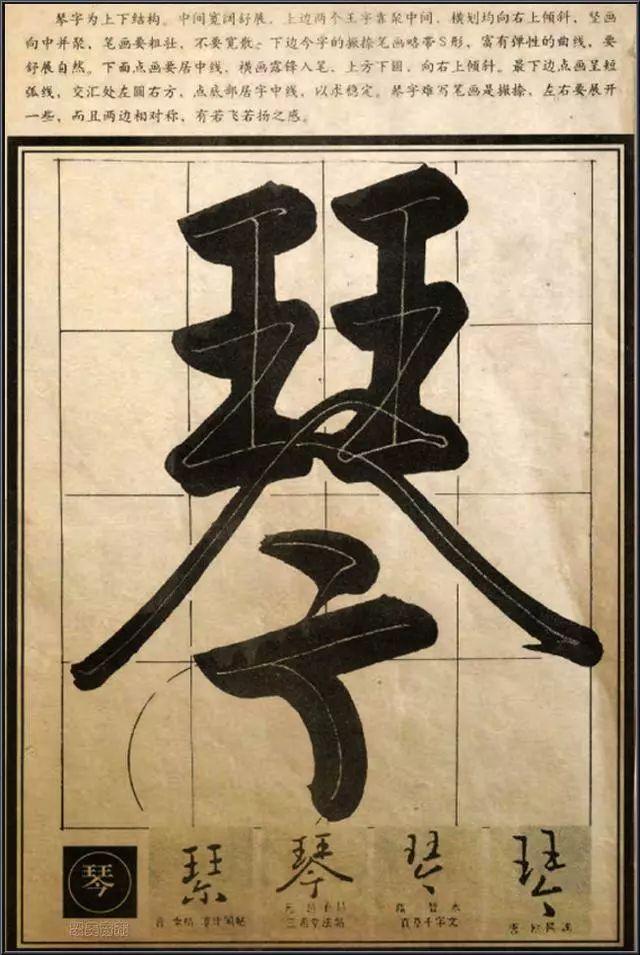 琴字为上下结构。中间宽阔舒展，上边两个王字靠聚中间，横划均向右上倾斜，竖画
向中并聚，笔画要粗壮，不要宽散。下边今字的撇捺笔画略带S形，富有弹性的曲线，要
舒展自然。下面点画要居中线，横画露锋入笔，上方下圆，向右上倾斜。最下边点画呈短
弧线，交汇处左圆右方，点底部居字中线，以求稳定。琴字难写笔画是撇捺，左右要展开
一些，而且两边相对称，有若飞若扬之感。
琴
琴
琴 琴 琴 琴
三希堂法帖
真草千字文